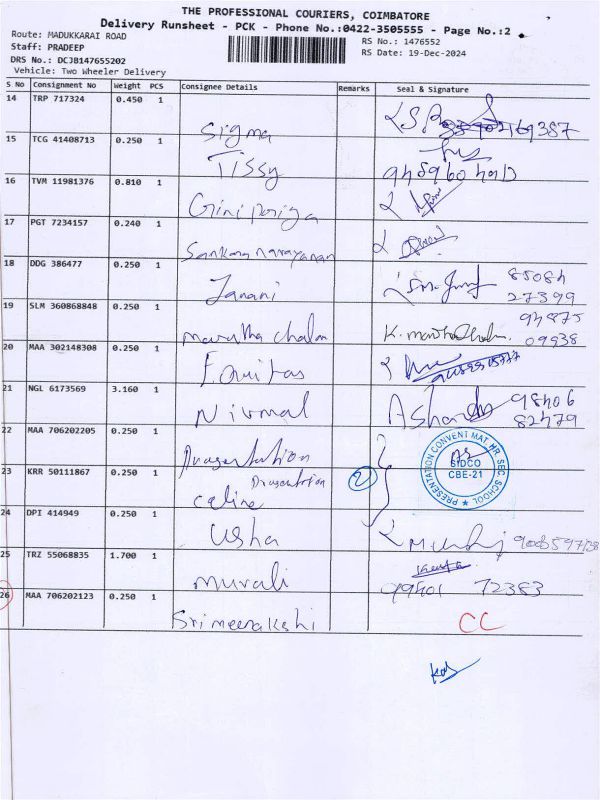 THE PROFESSIONAL COURIERS, COIMBATORE
Delivery Runsheet - PCK - Phone No.:0422-3505555 - Page No.:2
Route: MADUKKARAI ROAD
RS No.: 1476552
Staff: PRADEEP
RS Date: 19-Dec-2024
DRS No.: DCJB147655202
Vehicle: Two Wheeler Delivery
S No Consignment No Weight PCS Consignee Details Remarks Seal & Signature
14 TRP 717324 0.450 1
Sigma
15 TCG 41408713 0.250 1
Tissy
16 TVM 11981376 0.810 1
17 PGT 7234157 0.240 1
Sankara narayanan
18 DDG 386477 0.250 1
Janani
85084
27399
19 SLM 360868848 0.250 1
Marutha chalam
94875
09938
20 MAA 302148308 0.250 1
21 NGL 6173569 3.160 1
Nirmal
98406
82479
22 MAA 706202205 0.250 1
Presentation
PRESENTATION CONVENT MAT HR. SEC SCHOOL
SIDCO
CBE-21
23 KRR 50111867 0.250 1
Presentation
celine
2
24 DPI 414949 0.250 1
Usha
25 TRZ 55068835 1.700 1
Murali
99401 72383
26 MAA 706202123 0.250 1
Sri meenakshi
CC